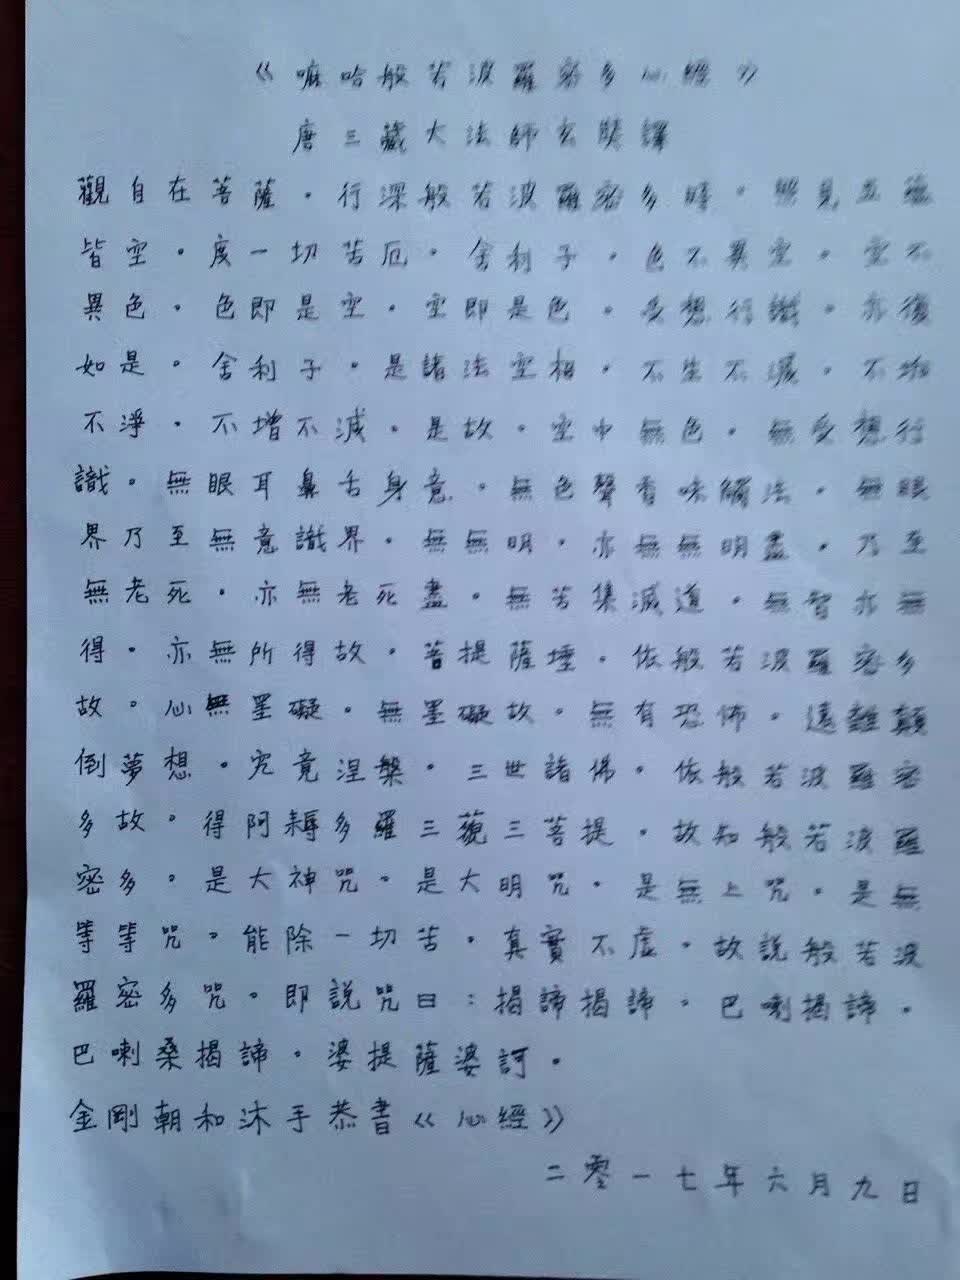 《嘛哈般若波羅密多心經》
唐三藏大法師玄奘譯
觀自在菩薩。行深般若波羅密多時。照見五蘊
皆空。度一切苦厄。舍利子。色不異空。空不
異色。色即是空。空即是色。受想行識。亦復
如是。舍利子。是諸法空相。不生不滅。不垢
不淨。不增不減。是故。空中無色。無受想行
識。無眼耳鼻舌身意。無色聲香味觸法。無眼
界乃至無意識界。無無明。亦無無明盡。乃至
無老死。亦無老死盡。無苦集滅道。無智亦無
得。亦無所得故。菩提薩埵。依般若波羅密多
故。心無罣礙。無罣礙故。無有恐怖。遠離顛
倒夢想。究竟涅槃。三世諸佛。依般若波羅密
多故。得阿耨多羅三藐三菩提。故知般若波羅
密多。是大神咒。是大明咒。是無上咒。是無
等等咒。能除一切苦。真實不虛。故說般若波
羅密多咒。即說咒曰：揭諦揭諦。巴喇揭諦。
巴喇桑揭諦。婆提薩婆訶。
金剛朝和沐手恭書《心經》
二零一七年六月九日